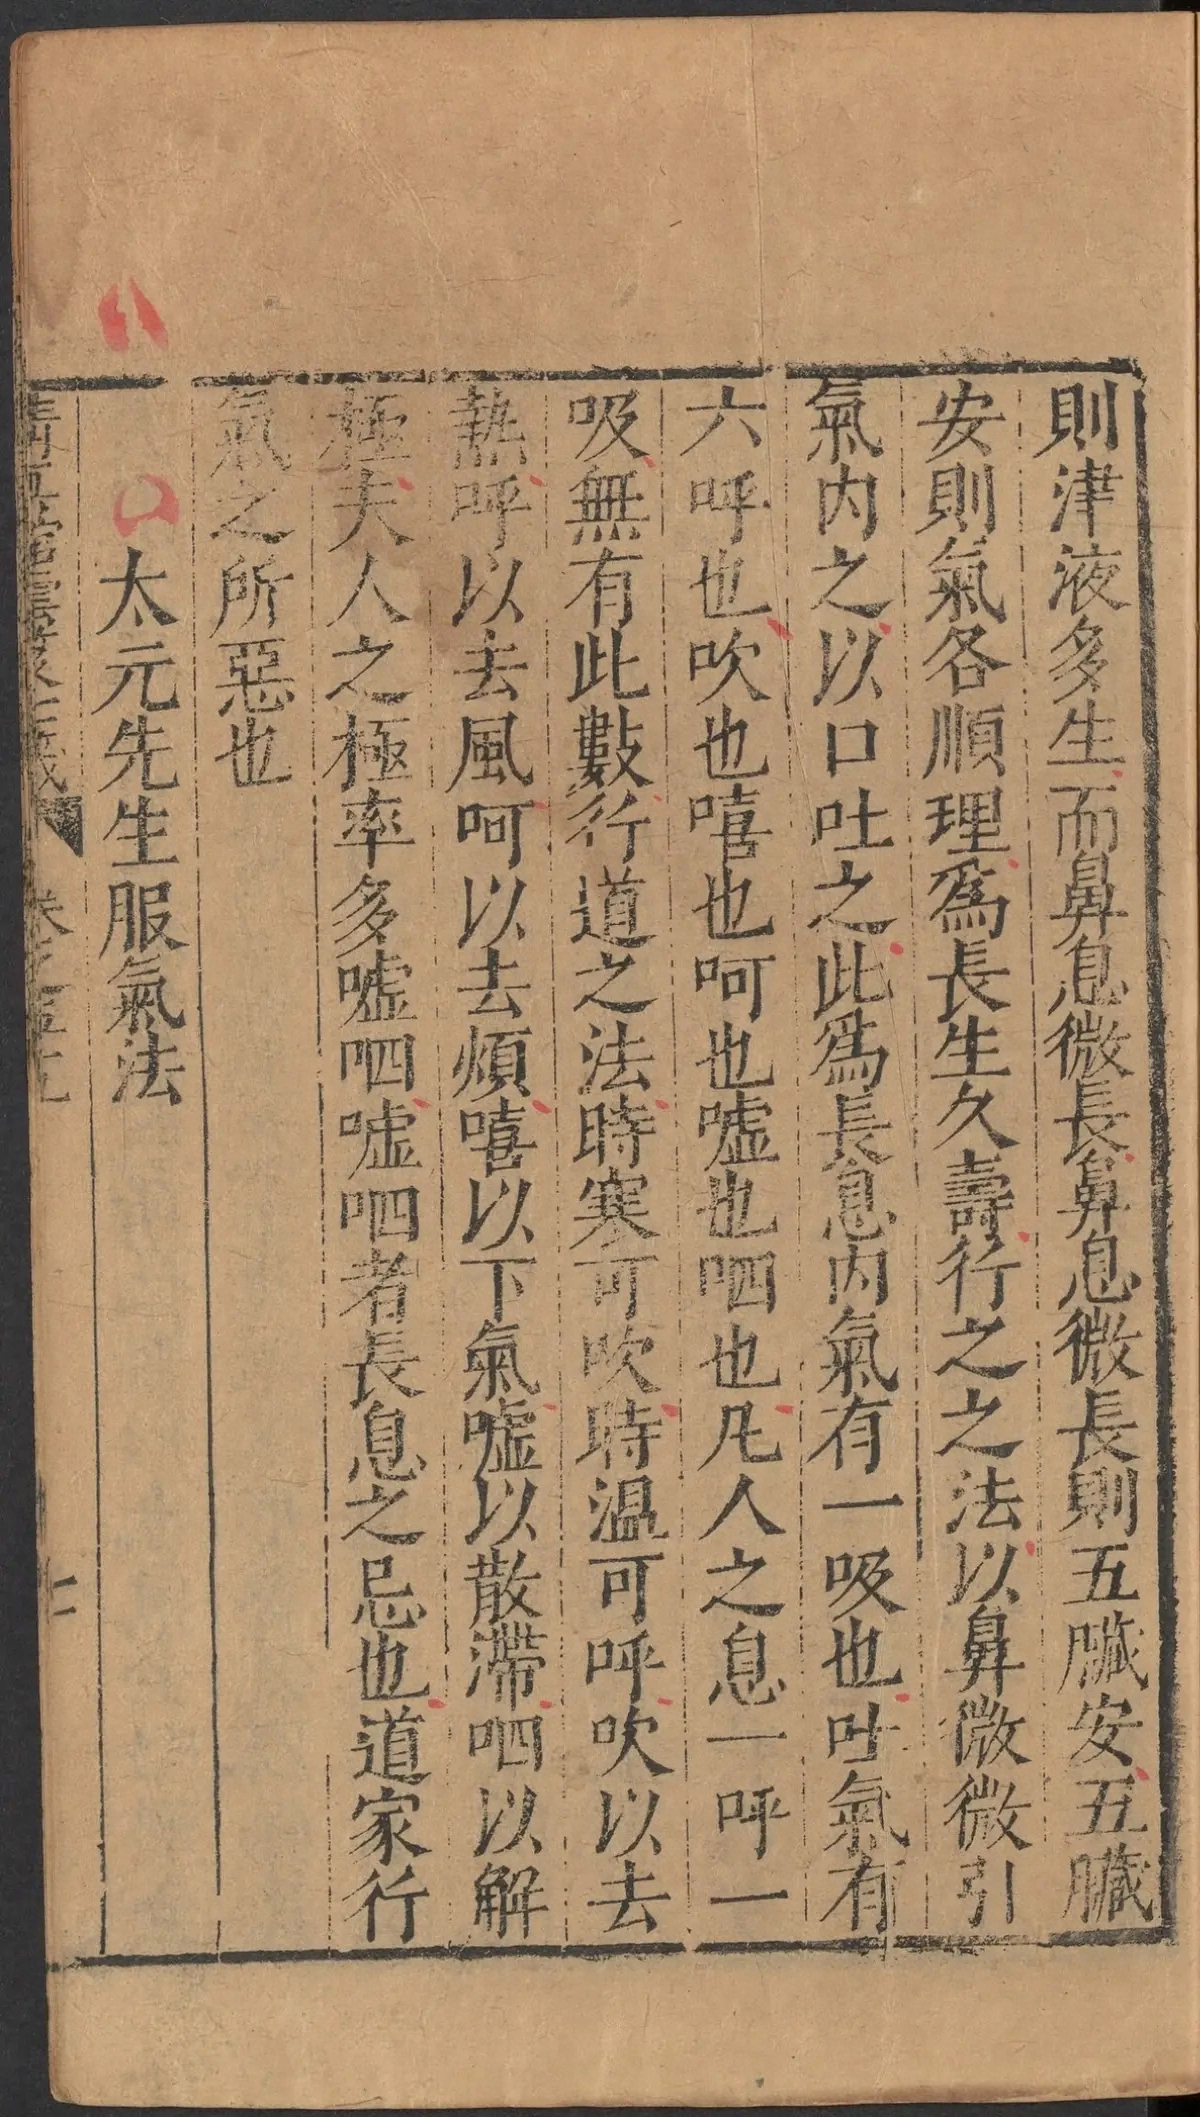 則津液多生而鼻息微長鼻息微長則五臟安五臟
安則氣各順理爲長生久壽行之之法以鼻微微引
氣内之以口吐之此爲長息内氣有一吸也吐氣有
六呼也吹也嘻也呵也噓也呬也凡人之息一呼一
吸無有此數行道之法時寒可吹時温可呼吹以去
熱呼以去風呵以去煩嘻以下氣噓以散滯呬以解
極夫人之極率多噓呬噓呬者長息之忌也道家行
氣之所惡也
太元先生服氣法